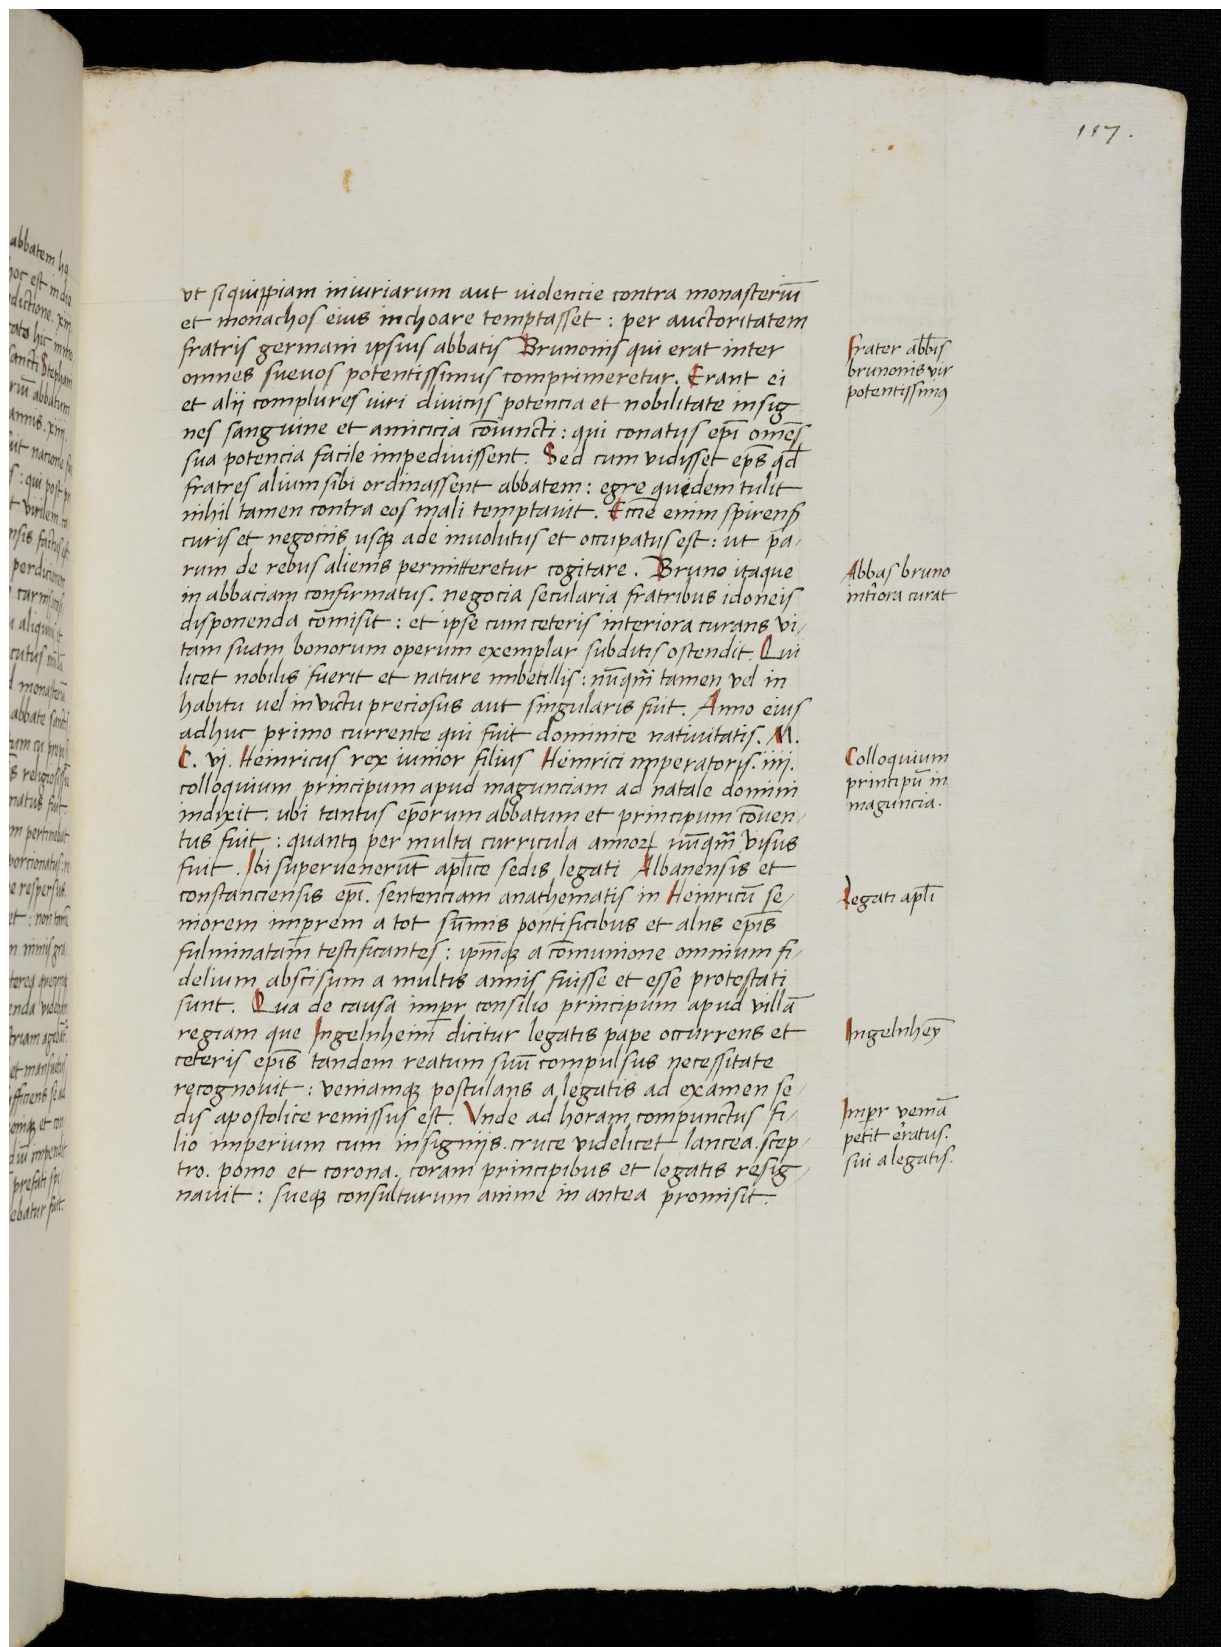 117.
vt si quippiam iniuriarum aut violencie contra monasteriū
et monachos eius inchoare temptasset : per auctoritatem
fratris germani ipsius abbatis Brunonis qui erat inter
omnes suevos potentissimus comprimeretur. Erant ei
et alij complures viri divicijs potencia et nobilitate insig
nes sanguine et amicicia cōiuncti : qui conatus ep̄i omēs
sua potencia facile impedivissent. Sed cum vidisset ep̄s qd̄
fratres alium sibi ordinassent abbatem : egre quidem tulit
nihil tamen contra eos mali temptavit. Eccīe enim spirensꝭ
curis et negociis usqꝫ adeo involutus et occupatus est : ut pa-
rum de rebus alienis permitteretur cogitare. Bruno itaque
in abbaciam confirmatus. negocia secularia fratribus idoneis
disponenda cōmisit : et ipse cum ceteris interiora curans vi-
tam suam bonorum operum exemplar subditis ostendit. Qui
licet nobilis fuerit et nature imbecillis : nūqm̄ tamen vel in
habitu vel in victu preciosus aut singularis fuit. Anno eius
adhuc primo currente qui fuit dominice nativitatis. M.
C. vj. Heinricus rex iunior filius Heinrici imperatoris. iiij.
colloquium principum apud magunciam ad natale domini
indixit. ubi tantus ep̄orum abbatum et principum cōven-
tus fuit : quantꝯ per multa curricula annoꝝ nūqm̄ visus
fuit. Ibi supervenerūt aplīce sedis legati Albanensis et
constanciensis ep̄i. sentenciam anathematis in Heinricū se-
niorem imp̄rem a tot sūmis pontificibus et aliis ep̄is
fulminatam testificantes : ipm̄qꝫ a cōmunione omnium fi-
delium abscisum a multis annis fuisse et esse protestati
sunt. Qua de causa imp̄r consilio principum apud villā
regiam que Ingelnheim̄ dicitur legatis pape occurrens et
ceteris ep̄is tandem reatum suū compulsus necessitate
recognovit : veniamqꝫ postulans a legatis ad examen se-
dis apostolice remissus est. Vnde ad horam compunctus fi-
lio imperium cum insignijs. cruce videlicet lancea. scep-
tro. pomo et corona. coram principibus et legatis resig-
navit : sueqꝫ consulturum anime in antea promisit.
Frater abbīs
brunonis vir
potentissimꝯ
Abbas bruno
intīora curat
Colloquium
principū in
maguncia.
Legati aplī
Ingelnheȳ
Imp̄r veniā
petit erratus.
sui a legatis.